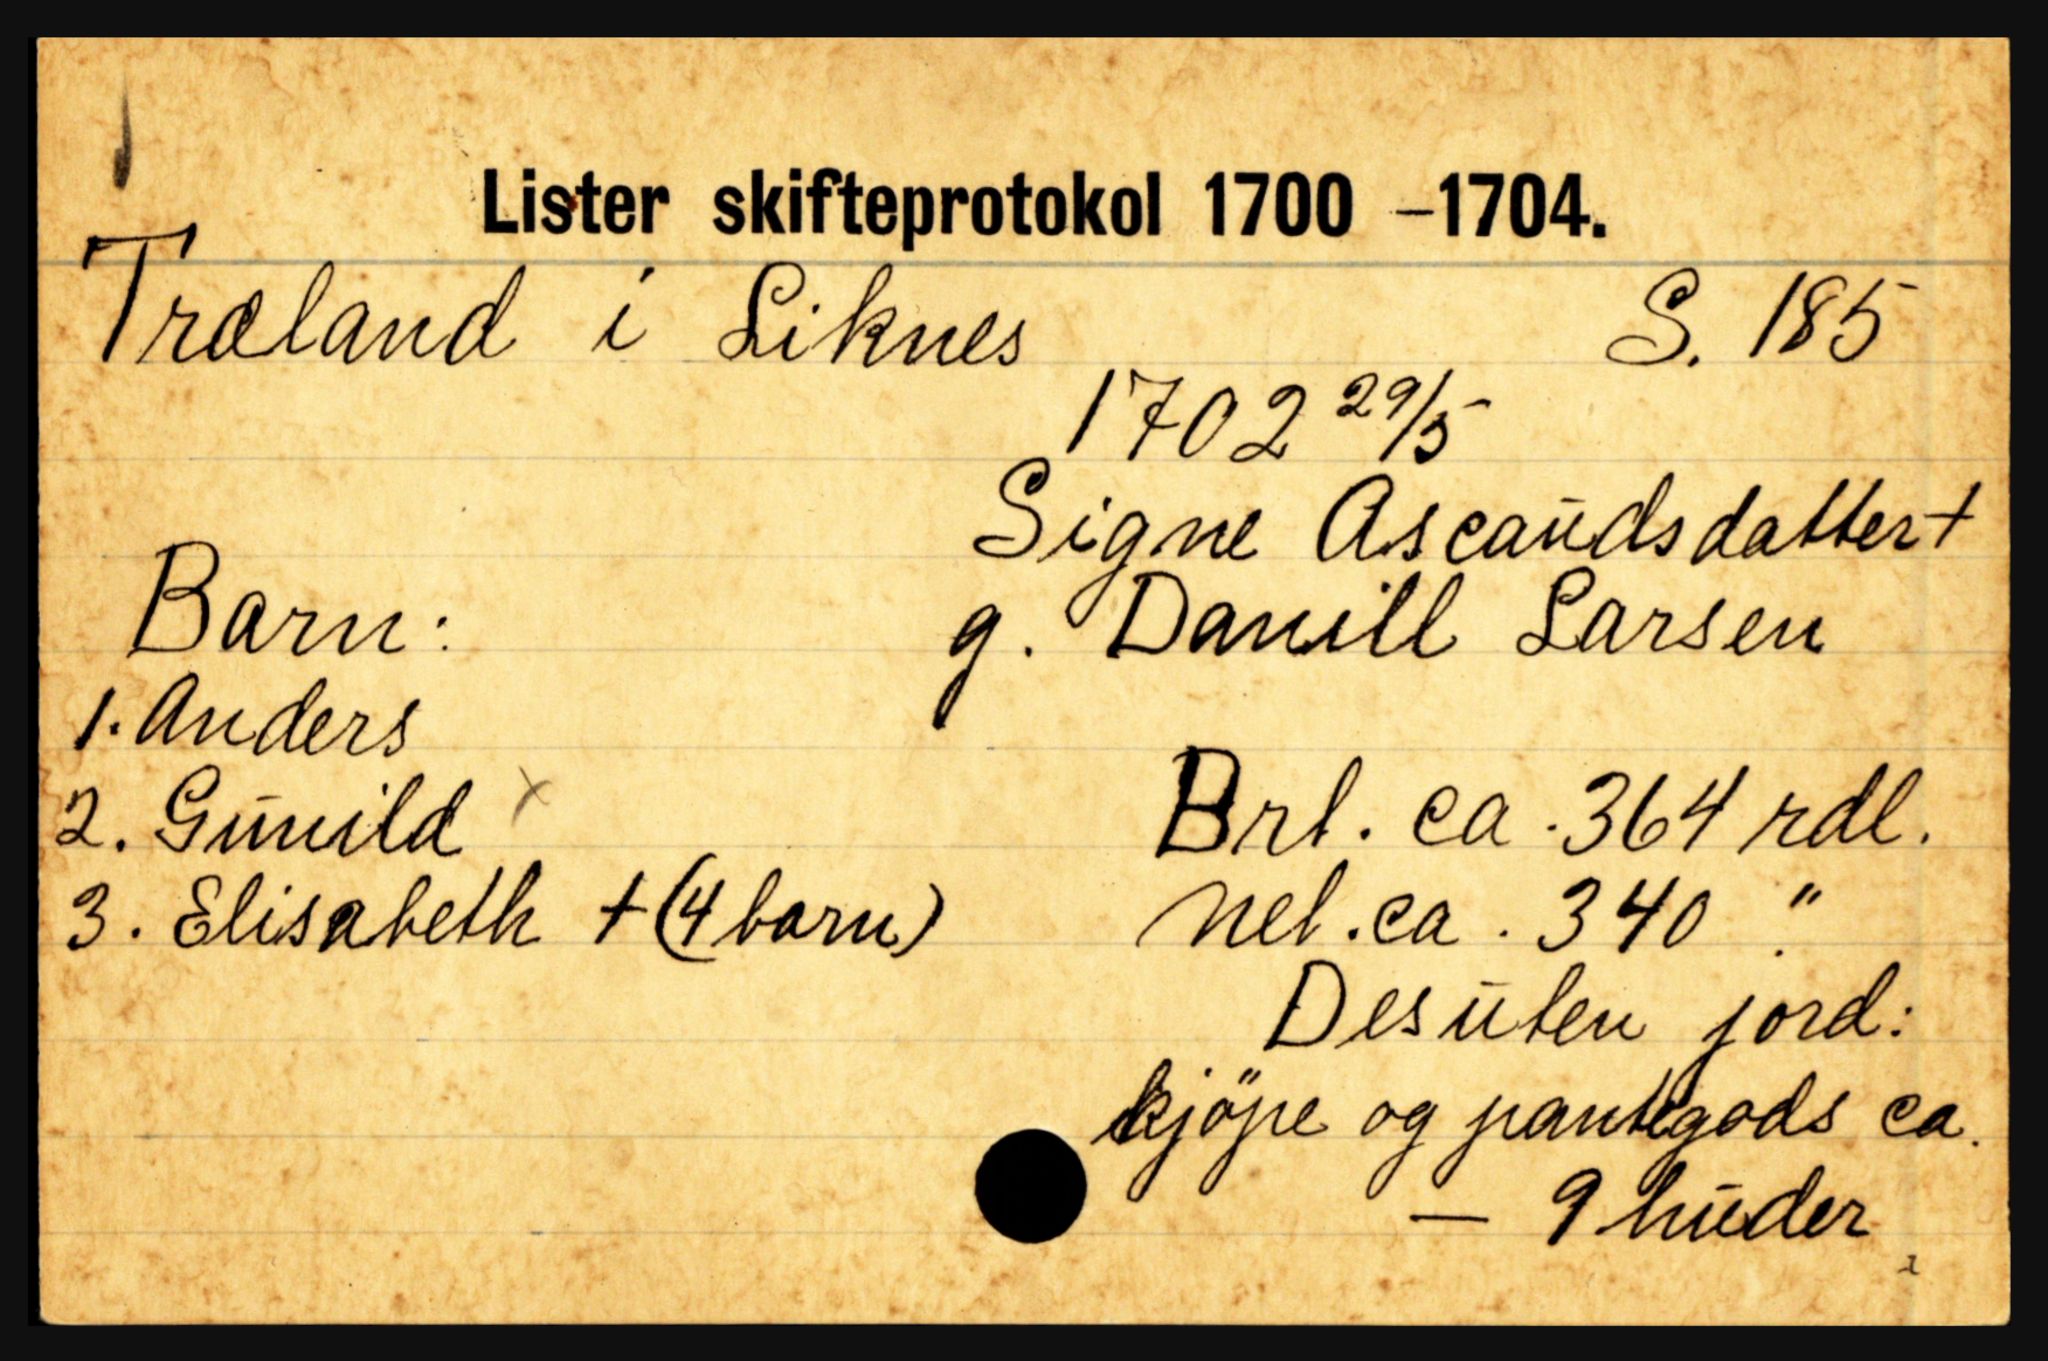 Lister skifteprotokol 1700 –1704.
Træland i Liknes S. 185
1702 29/5
Signe Ascaudsdatter +
g. Danill Larsen
Barn:
1. Anders
2. Gunild x
3. Elisabeth + (4 barn)
Brt. ca. 364 rdl.
Net. ca. 340 "
Desuten jord:
kjöpe og pantegods ca.
— 9 huder